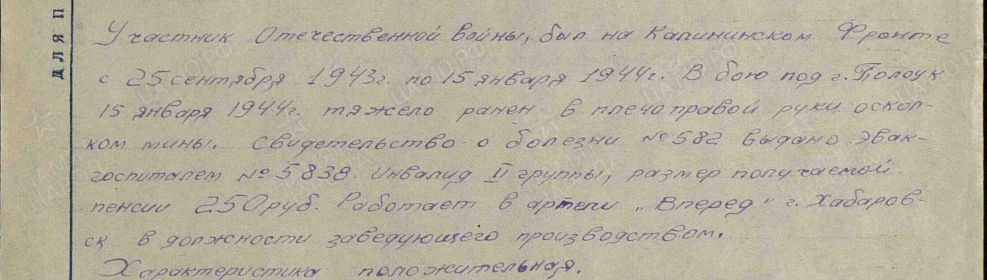 ДЛЯ П
Участник Отечественной войны, был на Калининском Фронте
с 25 сентября 1943г. по 15 января 1944г. В бою под г. Полоцк
15 января 1944г. тяжело ранен в плечо правой руки оскол-
ком мины. Свидетельство о болезни №582 выдано Эвак-
госпиталем №5838. Инвалид II группы, размер получаемой
пенсии 250руб. Работает в артели „Вперед" г. Хабаров-
ск в должности заведующего производством.
Характеристика положительная.